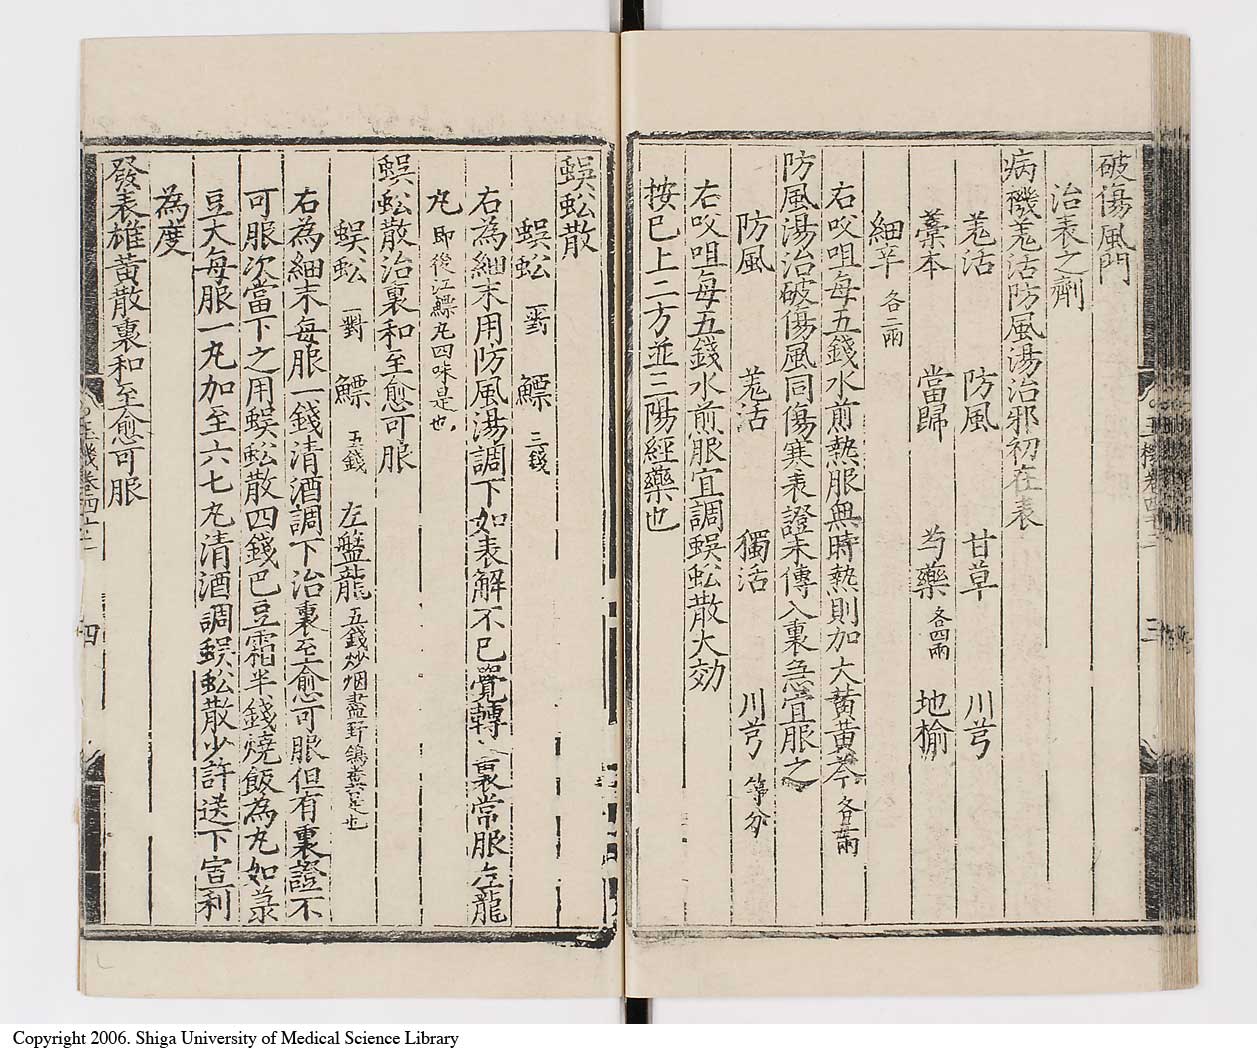 破傷風門
治表之劑
病機羌活防風湯治邪初在表
羌活 防風 甘草 川芎
藁本 當歸 芍藥 各四兩 地榆
細辛 各二兩
右㕮咀每五錢水煎熱服無時熱則加大黃黃芩 各二兩
防風湯治破傷風同傷寒表證未傳入裏急宜服之
防風 羌活 獨活 川芎 等分
右㕮咀每五錢水煎服宜調蜈蚣散大効
按已上二方並三陽經藥也
蜈蚣散
蜈蚣 一對 鰾 三錢
右為細末用防風湯調下如表解不已覺轉入裏當服左龍
丸 即後江鰾丸四味是也
蜈蚣散治裏和至愈可服
蜈蚣 一對 鰾 五錢 左盤龍 五錢炒烟盡野鴿糞是也
右為細末每服一錢清酒調下治裏至愈可服但有裏證不
可服次當下之用蜈蚣散四錢巴豆霜半錢燒飯為丸如菉
豆大每服一丸加至六七丸清酒調蜈蚣散少許送下宣利
為度
發表雄黃散裏和至愈可服
四
Copyright 2006. Shiga University of Medical Science Library